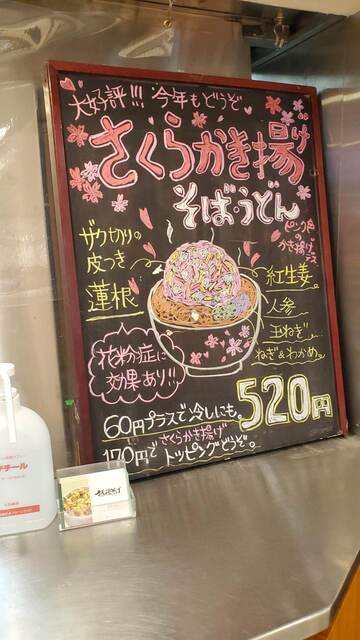 大好評!!! 今年もどうぞ
さくらかき揚げ
そば・うどん
ピンク色の
かき揚げ
ザクザクの
皮つき
蓮根
紅生姜
人参
玉ねぎ...
ねぎ&わかめ。
花粉症に
効果あり!!!
520円
60円プラスで冷しにも。
170円でさくらかき揚げ
トッピングどうぞ。